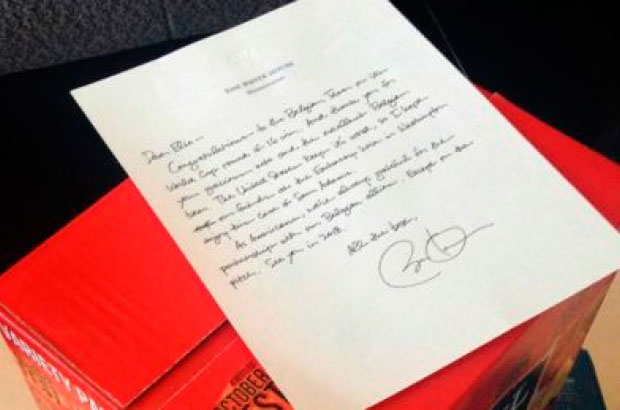 THE WHITE HOUSE
WASHINGTON
Dear Elio —
Congratulations to the Belgian Team on its
World Cup round of 16 win. And thank you for
your gracious note and the excellent Belgian
beer. The United States keeps its word, so I hope
our friends at the Embassy here in Washington
enjoy this case of Sam Adams.
As Americans, we're always grateful for the
partnership with our Belgian allies. Except on the
pitch. See you in 2018.
All the best,
VARIETY PA
OCTOBER